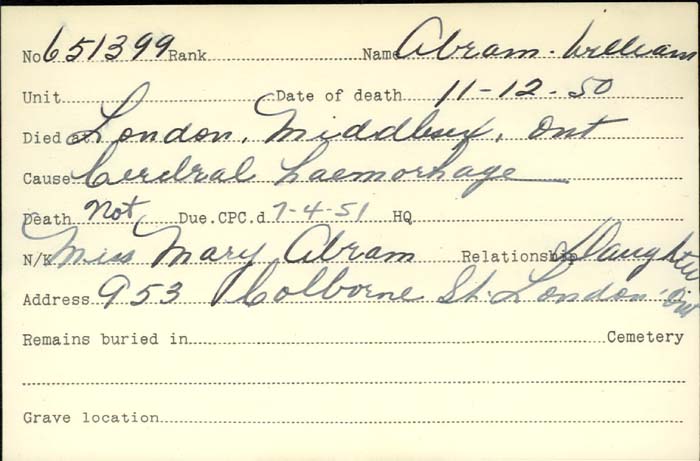 No 651399 Rank Name Abram. William
Unit Date of death 11-12-50
Died at London, Middlesex, Ont
Cause Cerebral haemorhage
Death Not Due. CPC.d 7-4-51 HQ
N/K Miss Mary Abram Relationship Daughter
Address 953 Colborne St. London. Ont
Remains buried in Cemetery
Grave location